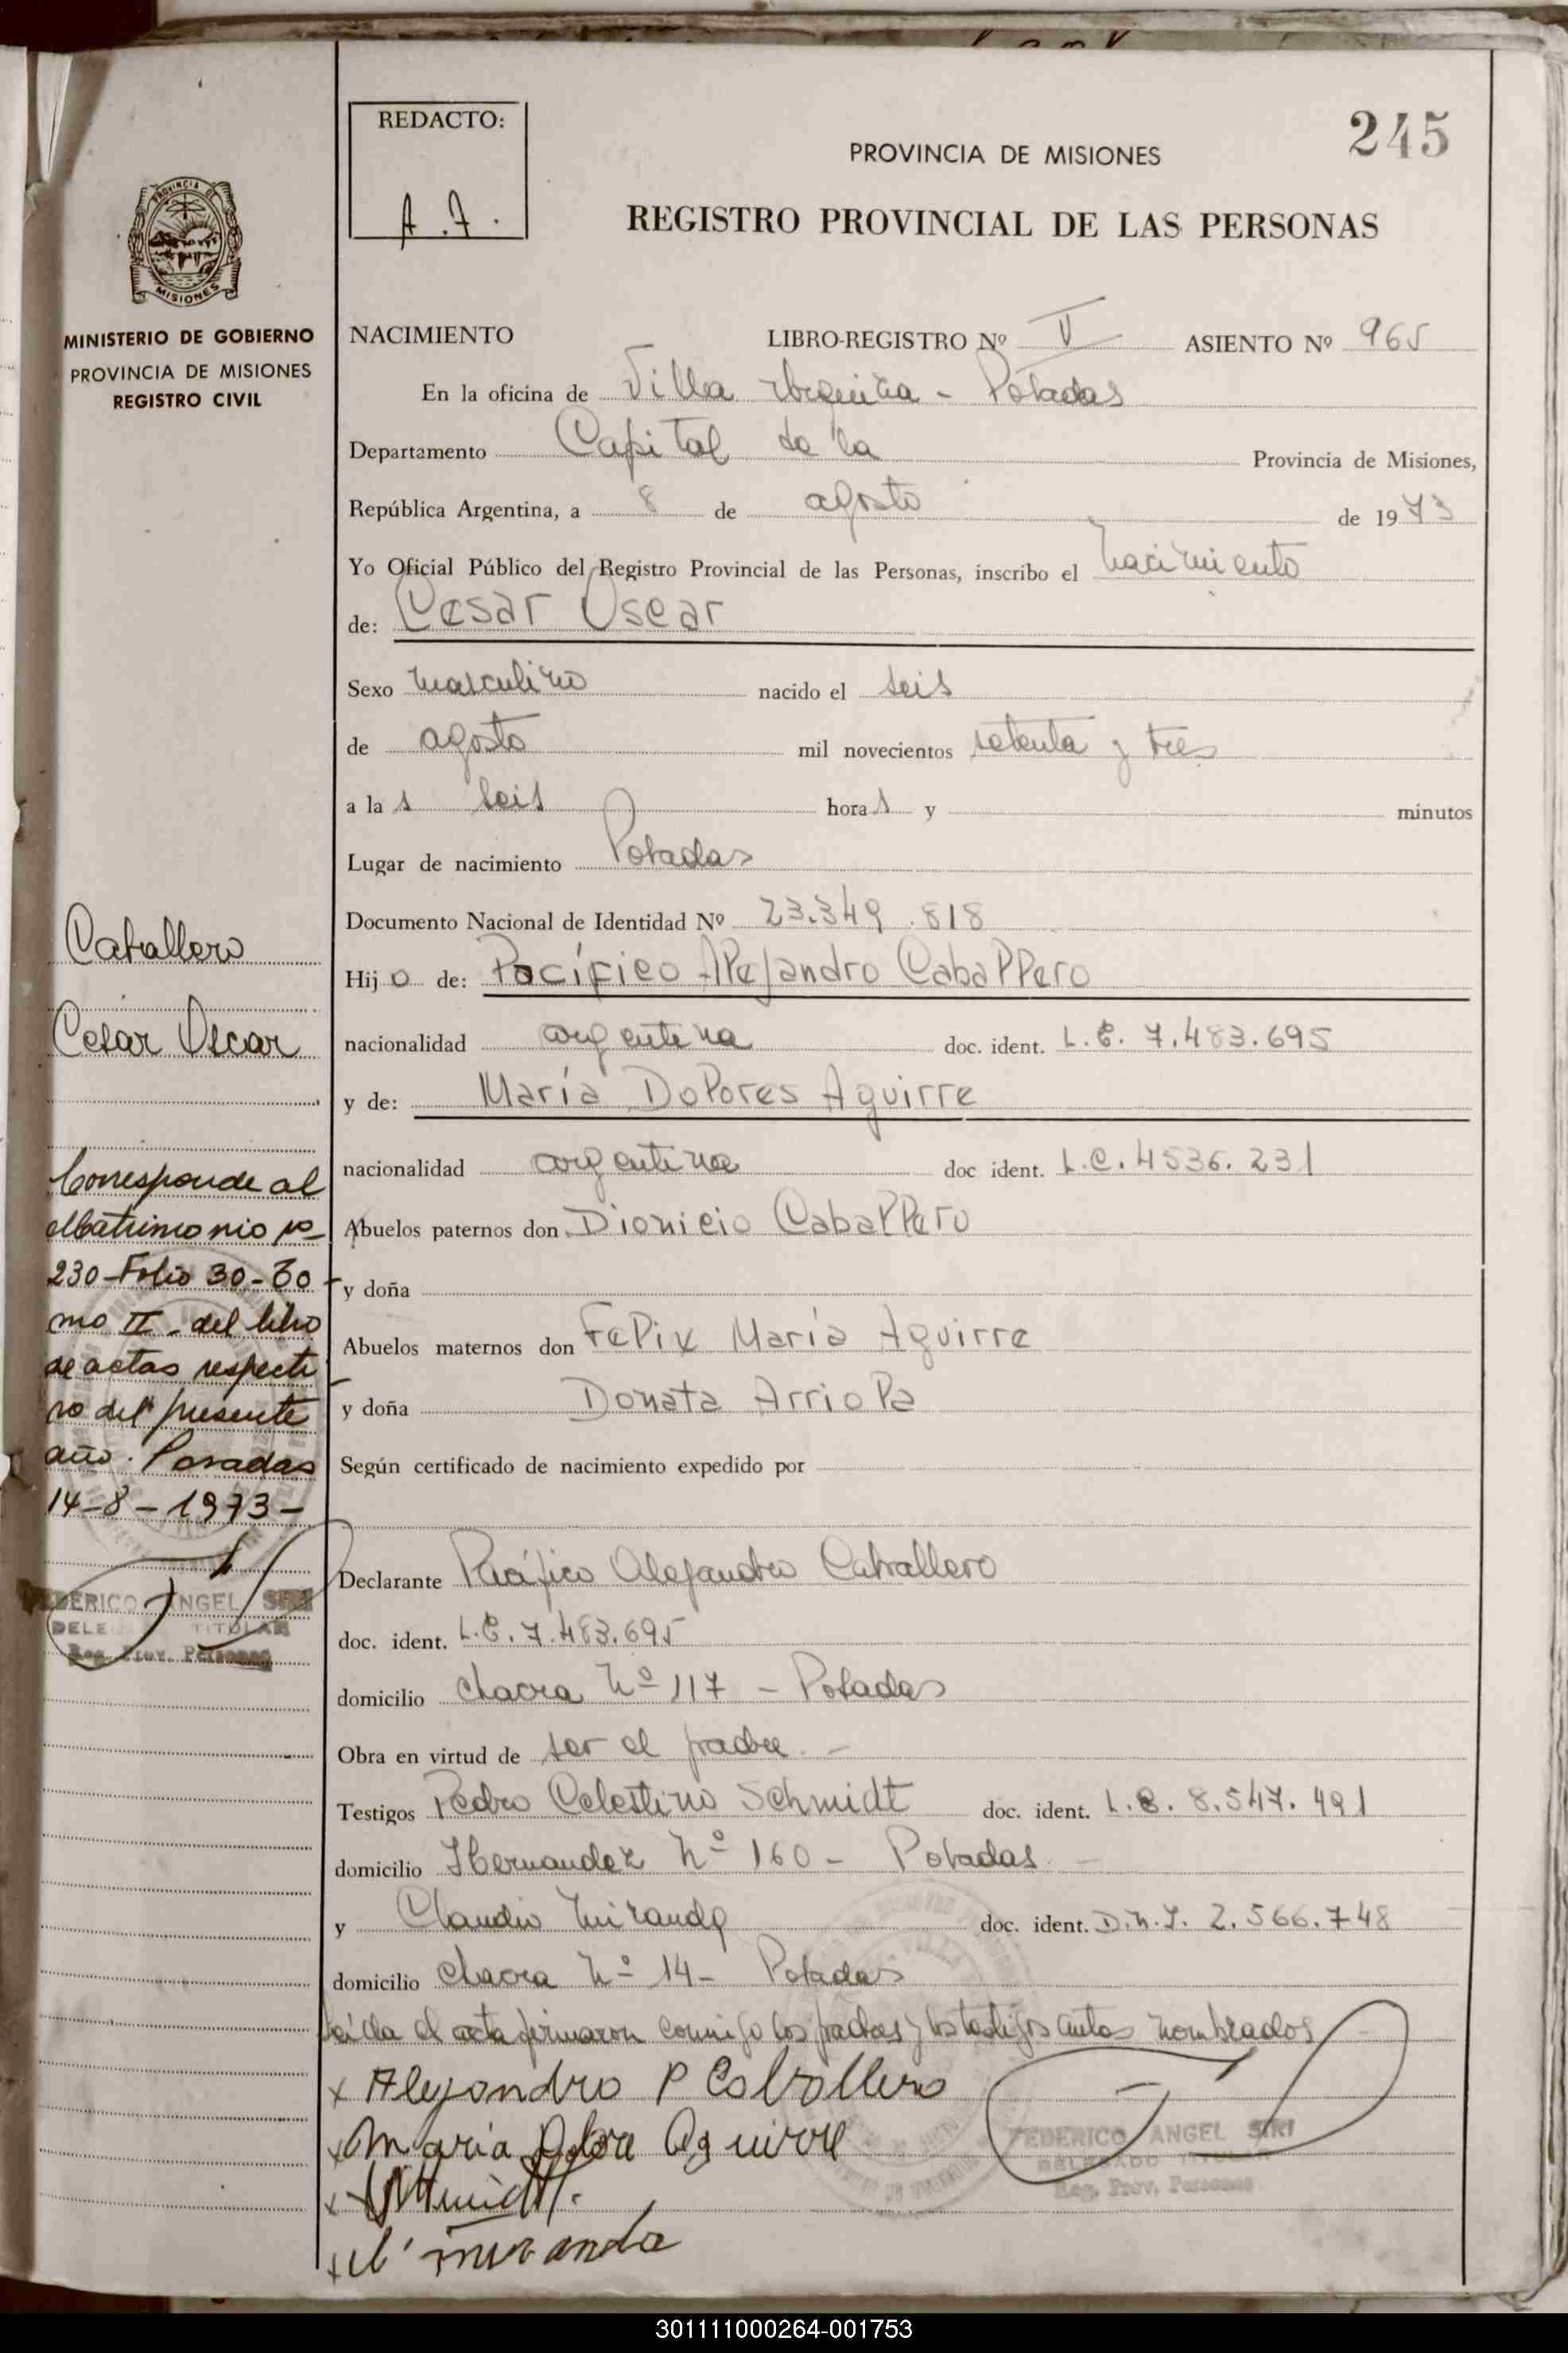 245
REDACTO:
A.F.
PROVINCIA DE MISIONES
REGISTRO PROVINCIAL DE LAS PERSONAS
PROVINCIA DE
MISIONES
MINISTERIO DE GOBIERNO
PROVINCIA DE MISIONES
REGISTRO CIVIL
NACIMIENTO LIBRO-REGISTRO Nº V ASIENTO Nº 965
En la oficina de Villa Urquiza - Posadas
Departamento Capital de la Provincia de Misiones,
República Argentina, a 8 de agosto de 1973
Yo Oficial Público del Registro Provincial de las Personas, inscribo el nacimiento
de: Cesar Oscar
Sexo masculino nacido el seis
de agosto mil novecientos setenta y tres
a las seis horas y minutos
Lugar de nacimiento Posadas
Documento Nacional de Identidad Nº 23.349.818
Hijo de: Pacífico Alejandro Caballero
nacionalidad argentina doc. ident. L.E. 7.483.695
y de: María Dolores Aguirre
nacionalidad argentina doc ident. L.C. 4536.231
Abuelos paternos don Dionicio Caballero
y doña
Abuelos maternos don Felix María Aguirre
y doña Donata Arriola
Según certificado de nacimiento expedido por
Declarante Pacífico Alejandro Caballero
doc. ident. L.E. 7.483.695
domicilio Chacra Nº 117 - Posadas
Obra en virtud de ser el padre -
Testigos Pedro Celestino Schmidt doc. ident. L.E. 8.547.491
domicilio Hernandez Nº 160 - Posadas -
y Claudio Miranda doc. ident. D.N.I. 2.566.748
domicilio Chacra Nº 14 - Posadas
Leída el acta firmaron conmigo los padres y los testigos antes nombrados
x Alejandro P Caballero
x Maria Aguirre
x Schmidt.
x C. miranda
FEDERICO ANGEL SIRI
DELEGADO TITULAR
Reg. Prov. Personas
Caballero
Cesar Oscar
Corresponde al
Matrimonio Nº
230-Folio 30-To
mo II - del libro
de actas respecti
vo del presente
año. Posadas
14-8-1973-
FEDERICO ANGEL SIRI
DELEGADO TITULAR
Reg. Prov. Personas
301111000264-001753